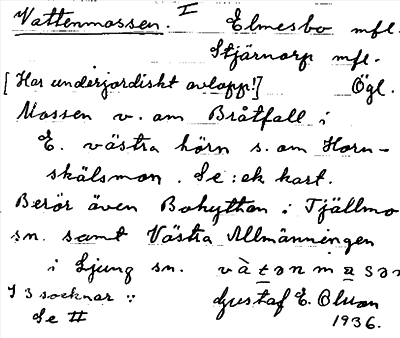 Vattenmossen. I Elmesbo mfl.
Stjärnorp mfl.
[Har underjordiskt avlopp!] Ögl.
Mossen v. om Bråtfall i
E. västra hörn s. om Horn-
skälsmon. Se: ek kart.
Berör även Bohyttan i Tjällmo
sn. samt Västra Allmänningen
i Ljung sn. vàtənmasən
I 3 socknar :: Gustaf E. Bluon
Se II 1936.